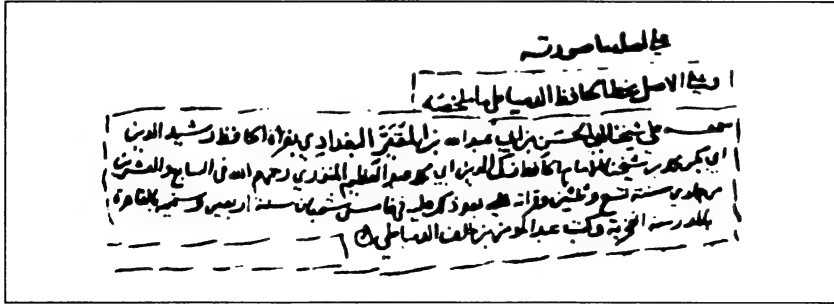 على أصلها صورته
وعلى الأصل بخط الحافظ الدمياطي ما ملخصه
سمعه على شيخنا أبي الحسن بن أبي عبد الله بن المقير البغدادي بقراءة الحافظ رشيد الدين
أبي بكر محمد بن شيخنا الإمام الحافظ زكي الدين أبي محمد عبد العظيم المنذري رحمهم الله في السابع والعشرين
من جمادى سنة تسع وثلثين وقراته عليه بعد ذكر عليه في خامس شعبان سنة اربعين وستمية بالقاهرة
بالمدرسة وكتب عبد المومن بن خلف الدمياطي